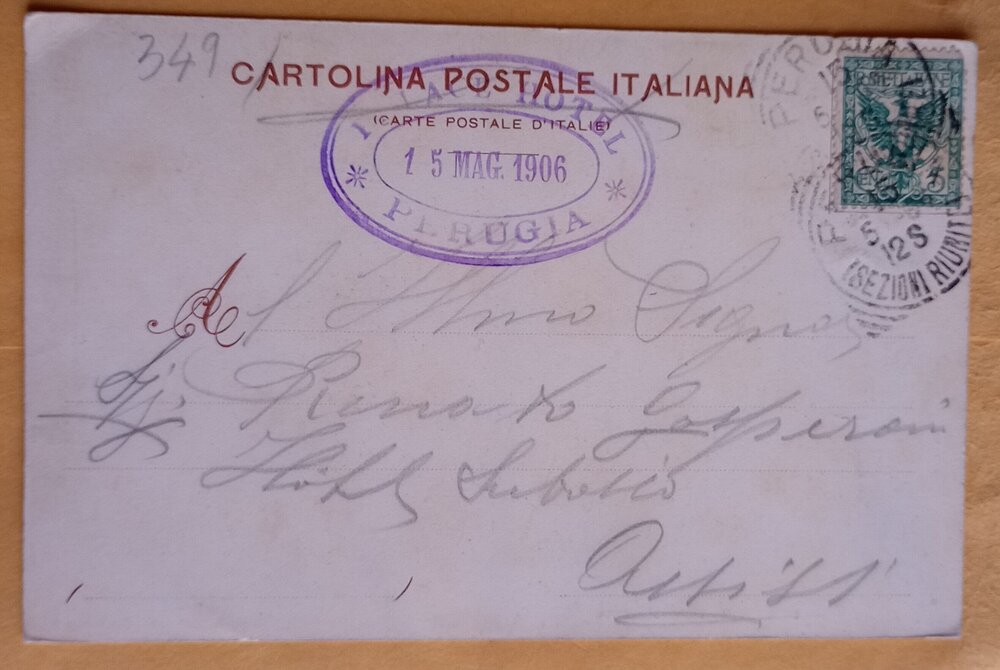 349
CARTOLINA POSTALE ITALIANA
(CARTE POSTALE D'ITALIE)
HOTEL
1 5 MAG. 1906
PERUGIA
PERUGIA
12 S
(SEZIONI RIUNITE)
Al Illmo Signor
Sig. Renato Gasperini
Hôtel Subasio
Assisi